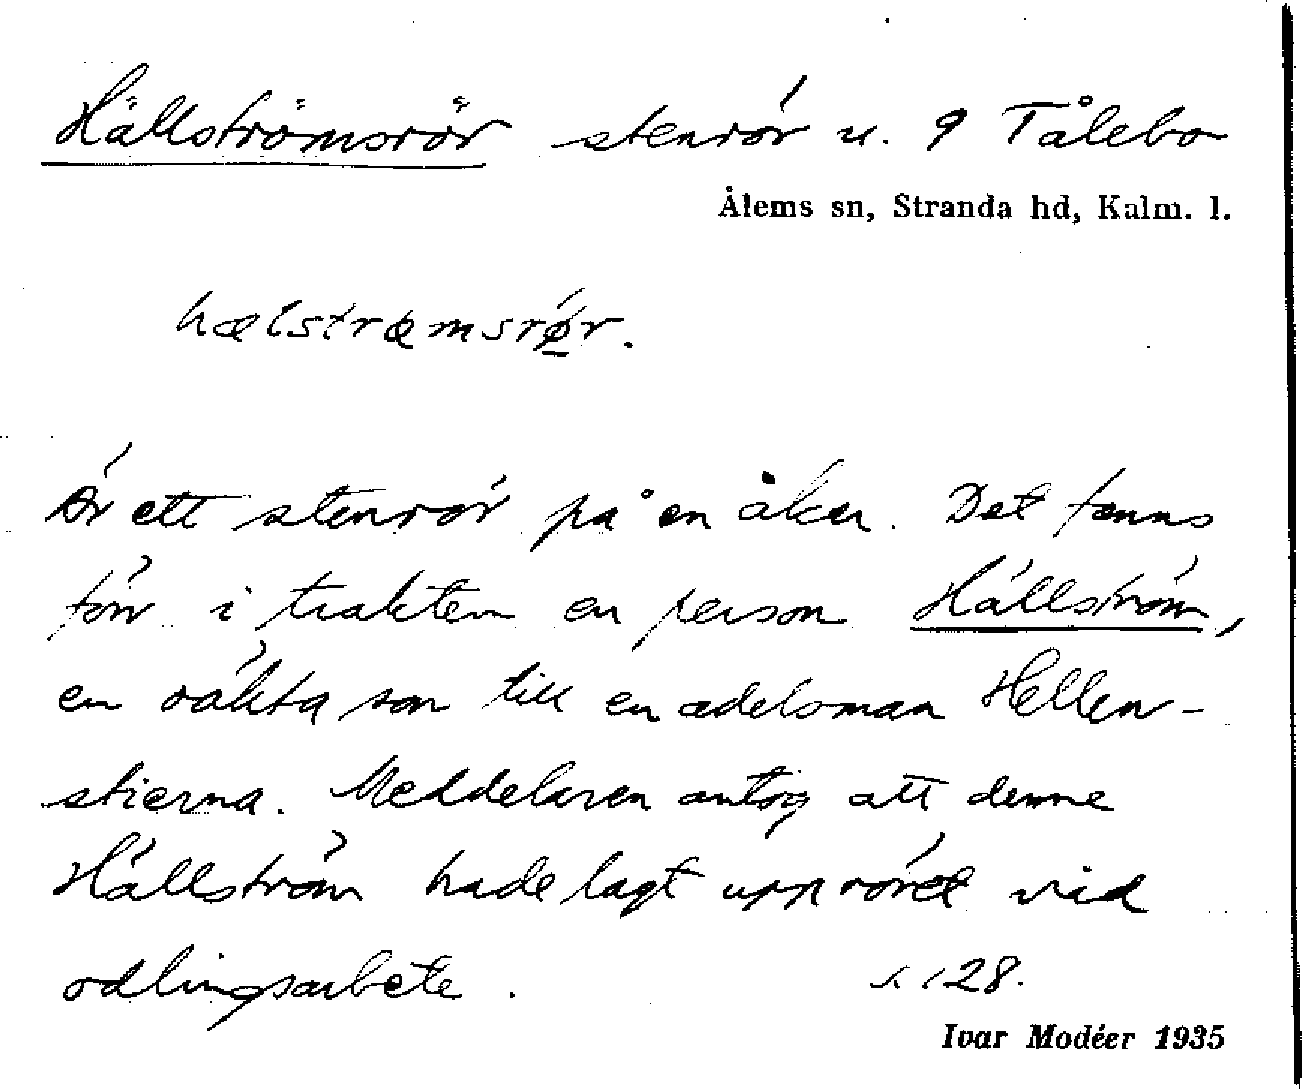 Hällströmsrör stenrör u. 9 Tålebo
Ålems sn, Stranda hd, Kalm. l.
hælstrœmsrǿ̱r.
Är ett stenrör på en åker. Det fanns
förr i trakten en person Hällström,
en oäkta son till en adelsman Hellen-
stierna. Meddelaren antog att denne
Hällström hade lagt upp röret vid
odlingsarbete.
s. 128.
Ivar Modéer 1935